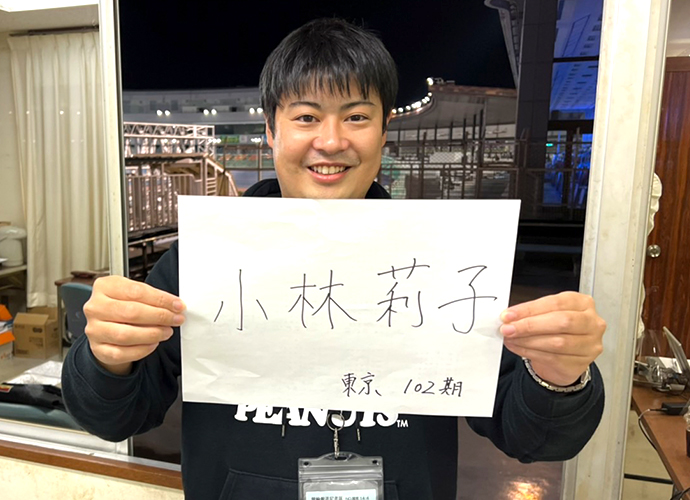 小林莉子
東京、102期
PEANUTS™